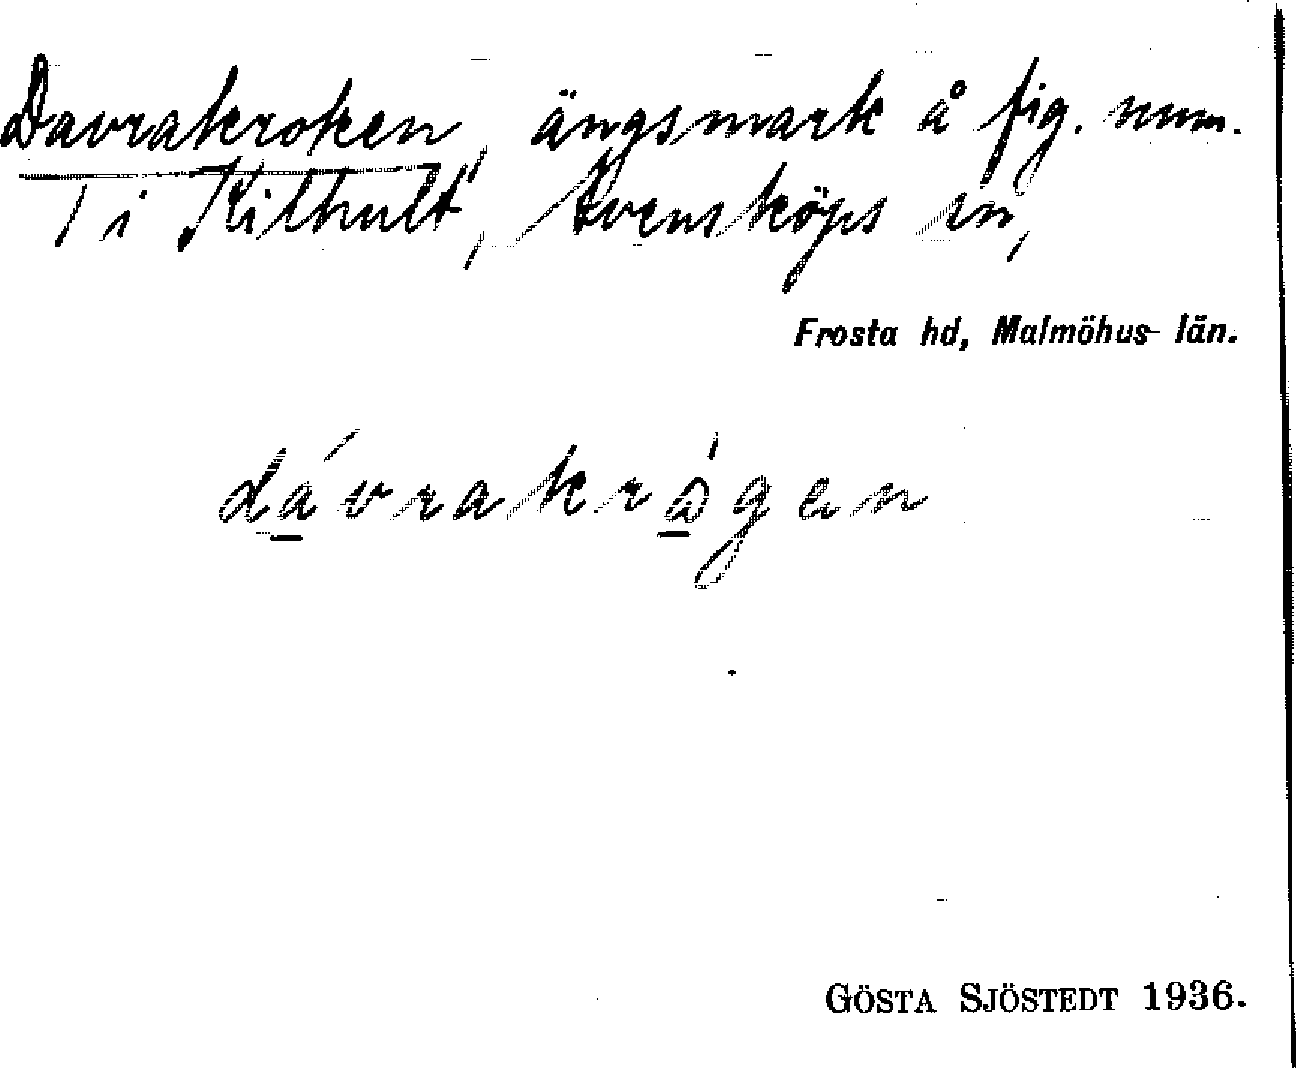 Davrakroken, ängsmark å fig. num.
1 i Kilhult, Svensköps sn,
Frosta hd, Malmöhus län.
dávrakrågen
GÖSTA SJÖSTEDT 1936.